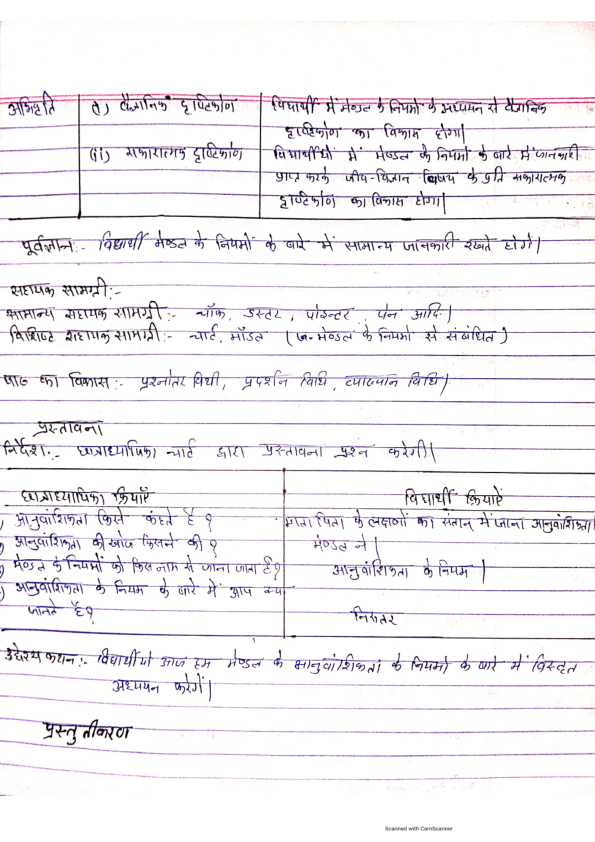 अभिवृति (i) वैज्ञानिक दृष्टिकोण विद्यार्थी में मेण्डल के नियमों के अध्ययन से वैज्ञानिक
दृष्टिकोण का विकास होगा।
(ii) सकारात्मक दृष्टिकोण विद्यार्थीयों में मेण्डल के नियमों के बारे में जानकारी
प्राप्त करके जीव-विज्ञान विषय के प्रति सकारात्मक
दृष्टिकोण का विकास होगा।
पूर्वज्ञान:- विद्यार्थी मेण्डल के नियमों के बारे में सामान्य जानकारी रखते होंगे।
सहायक सामग्री:-
सामान्य सहायक सामग्री:- चॉक, डस्टर, पॉइन्टर, पेन आदि।
विशिष्ट सहायक सामग्री:- चार्ट, मॉडल ( मेण्डल के नियमों से संबंधित )
पाठ का विकास:- प्रश्नोतर विधी, प्रदर्शन विधि, व्याख्यान विधि।
प्रस्तावना
निर्देश:- छात्राध्यापिका चार्ट द्वारा प्रस्तावना प्रश्न करेगी।
छात्राध्यापिका क्रियाएँ विधार्थी क्रियाऐं
आनुवांशिकता किसे कहते है ? माता पिता के लक्षणों का संतान में जाना आनुवांशिकता
आनुवांशिकता की खोज किसने की ? मेण्डल ने।
मेण्डल के नियमों को किस नाम से जाना जाता है? आनुवांशिकता के नियम।
आनुवांशिकता के नियम के बारे में आप क्या
जानते है? निरूतर
उद्देश्य कथन:- विद्यार्थीयों आज हम मेण्डल के आनुवांशिकता के नियमों के बारे में विस्तृत
अध्ययन करेगें।
प्रस्तुतीकरण
Scanned with CamScanner